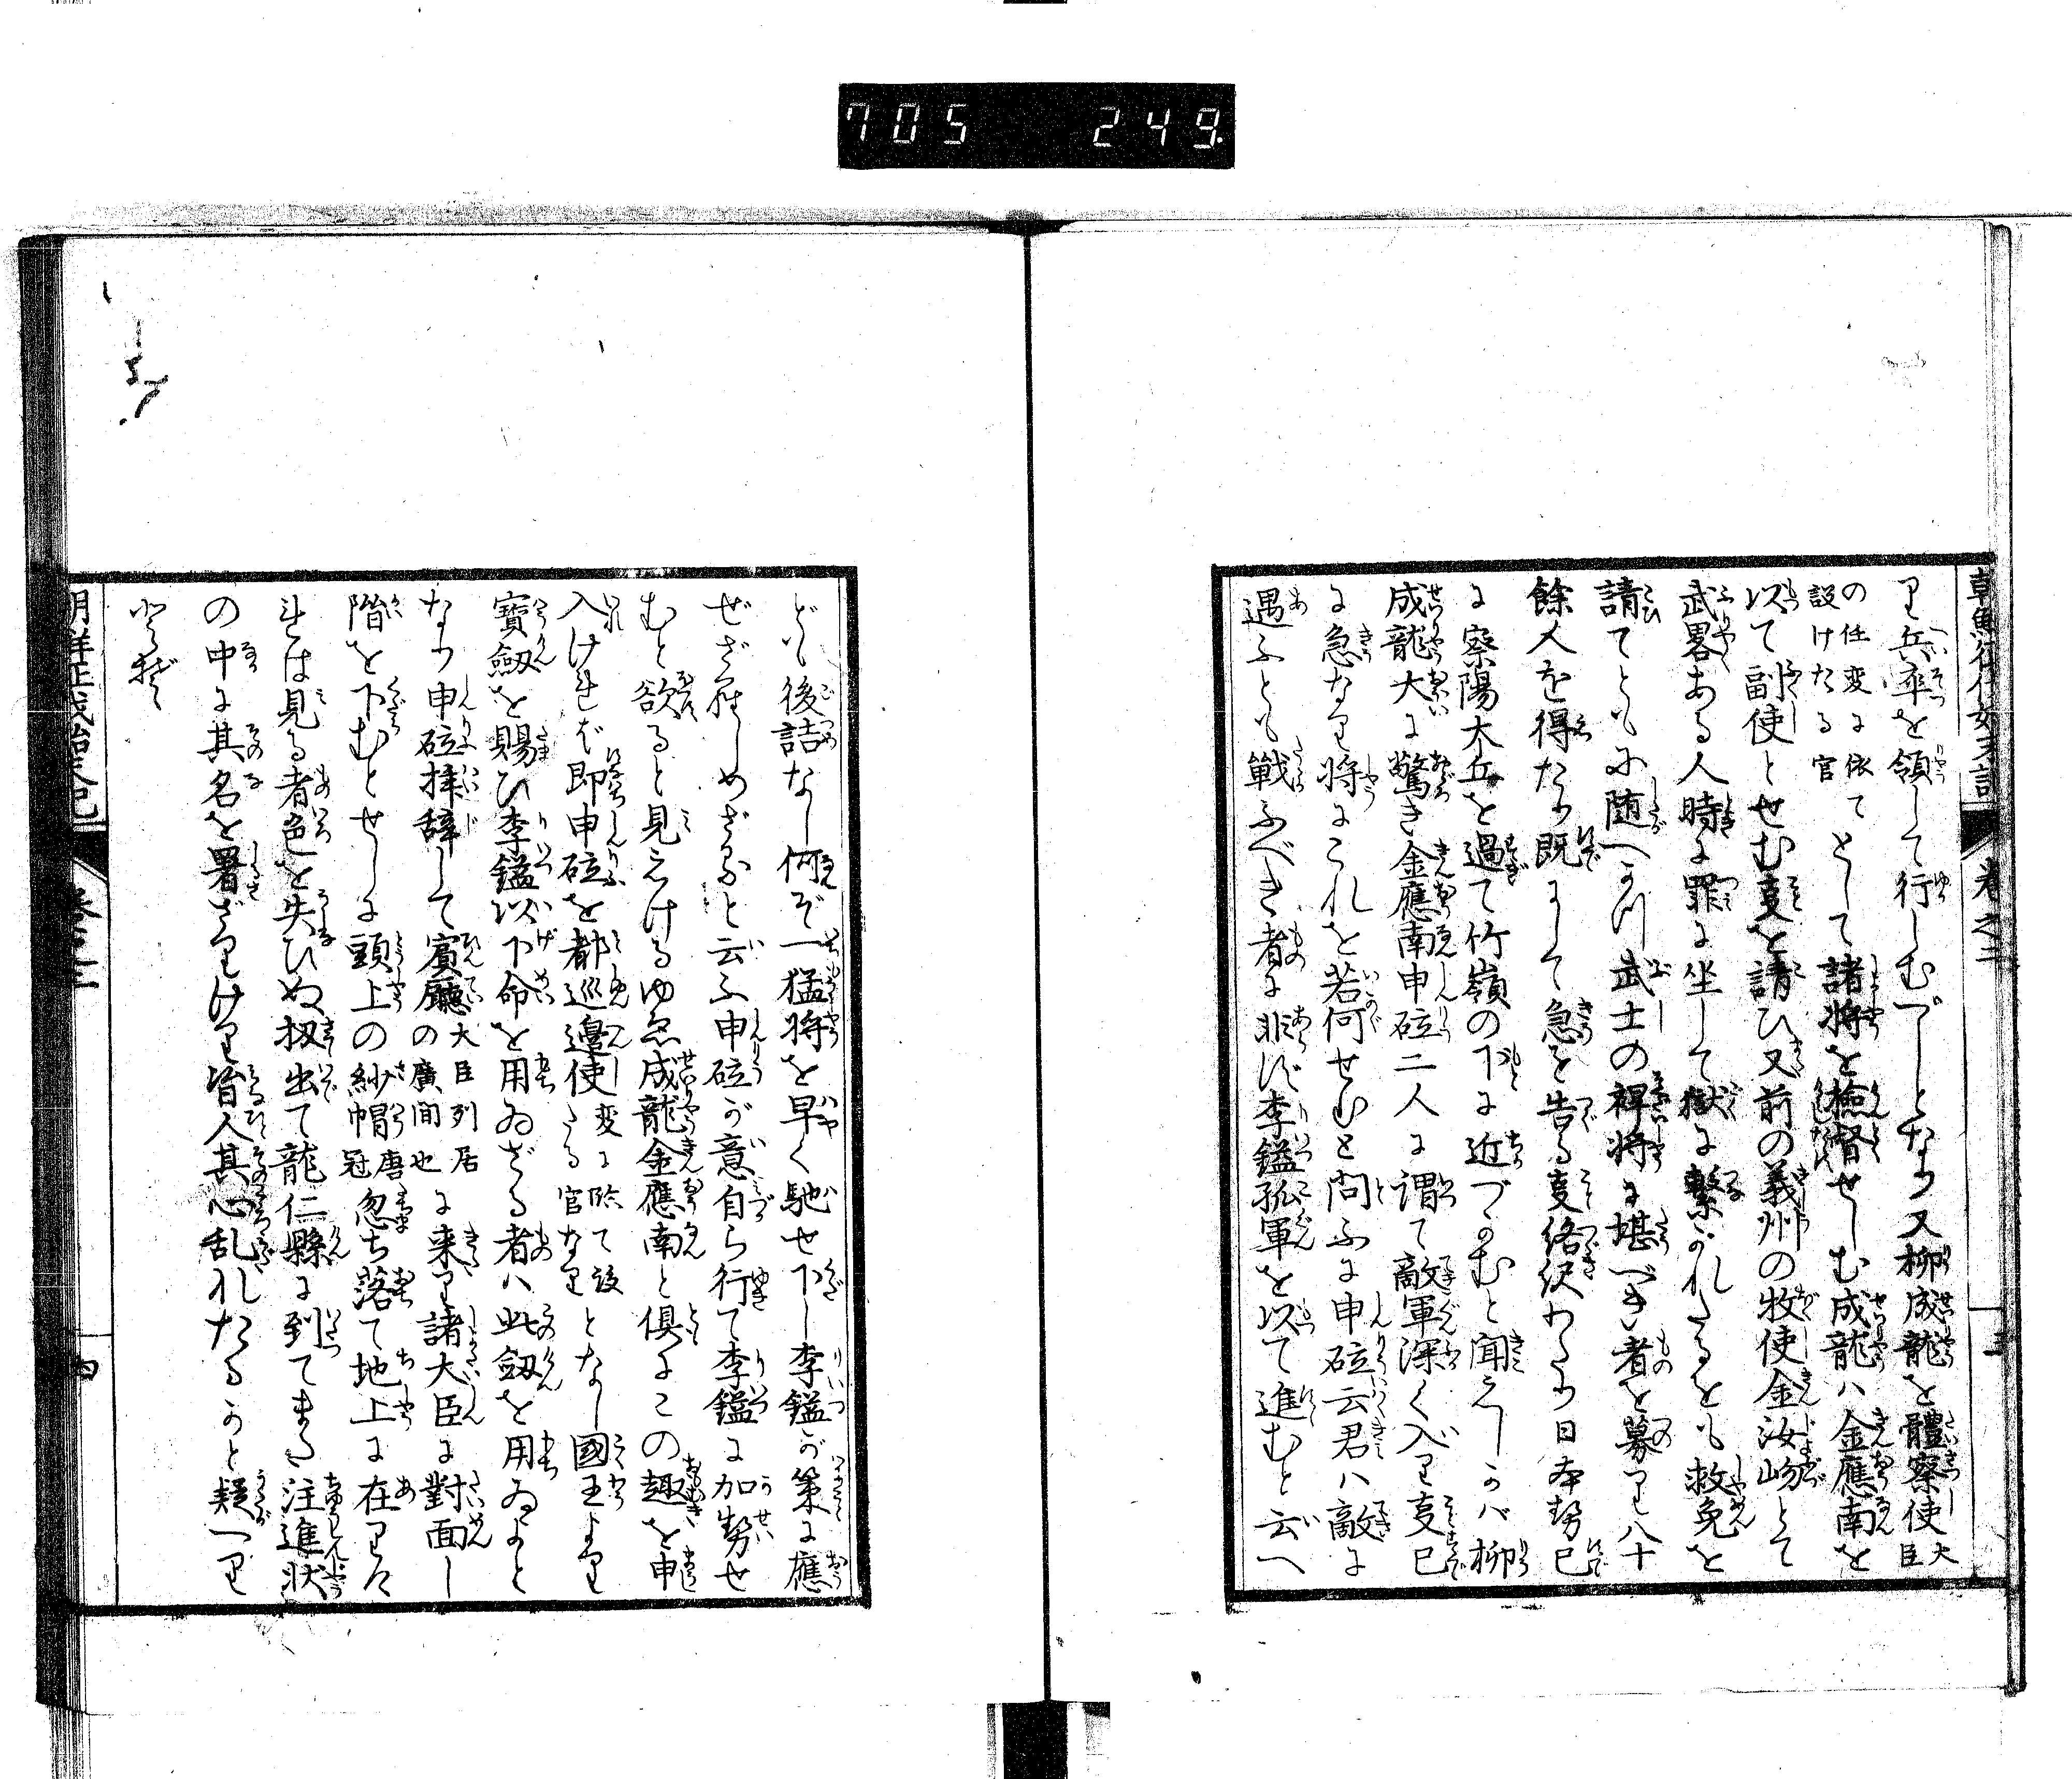 705 249
朝鮮征伐始末記 巻之三 三
り兵卒を領して行しむべしとなり又柳成龍を體察使大臣
の任変に依て設けたる官として諸将を檢督せしむ成龍ハ金應南を
以て副使とせむ㕝を請ひ又前の義州の牧使金汝岉とて
武畧ある人時に罪に坐して獄に繋がれたるをも赦免を
請てともに随へり武士の裨将に堪べき者を募り八十
餘人を得たり既にして急を告る㕝絡繹わたり日本勢已
に密陽大丘を過て竹嶺の下に近づかむと聞えしかバ柳
成龍大に驚き金應南申砬二人に謂て敵軍深く入り㕝已
に急なり将にこれを若何せむと問ふに申砬云君ハ敵に
遇ふとも戦ふべき者に非ず李鎰孤軍を以て進むと云へ
ども後詰なし何ぞ一猛将を早く馳せ下し李鎰が策に應
ぜざらしめざると云ふ申砬が意自ら行て李鎰に加勢せ
むと欲ると見えけるゆゑ成龍金應南と倶にこの趣を申
入けれバ即申砬を都巡邊使変に臨て設たる官なりとなし國王より
寳劔を賜ひ李鎰以下命を用ゐざる者ハ此劔を用ゐよと
なり申砬拝辞して賓廳大臣列居の廣間也に来り諸大臣に對面し
階を下むとせしに頭上の紗帽唐冠忽ち落て地上に在りけ
れは見る者色を失ひぬ扨出て龍仁縣に到てまた注進状
の中に其名を署ざりけり皆人其心乱れたるかと疑へり
朝鮮征伐始末記 巻之三 四